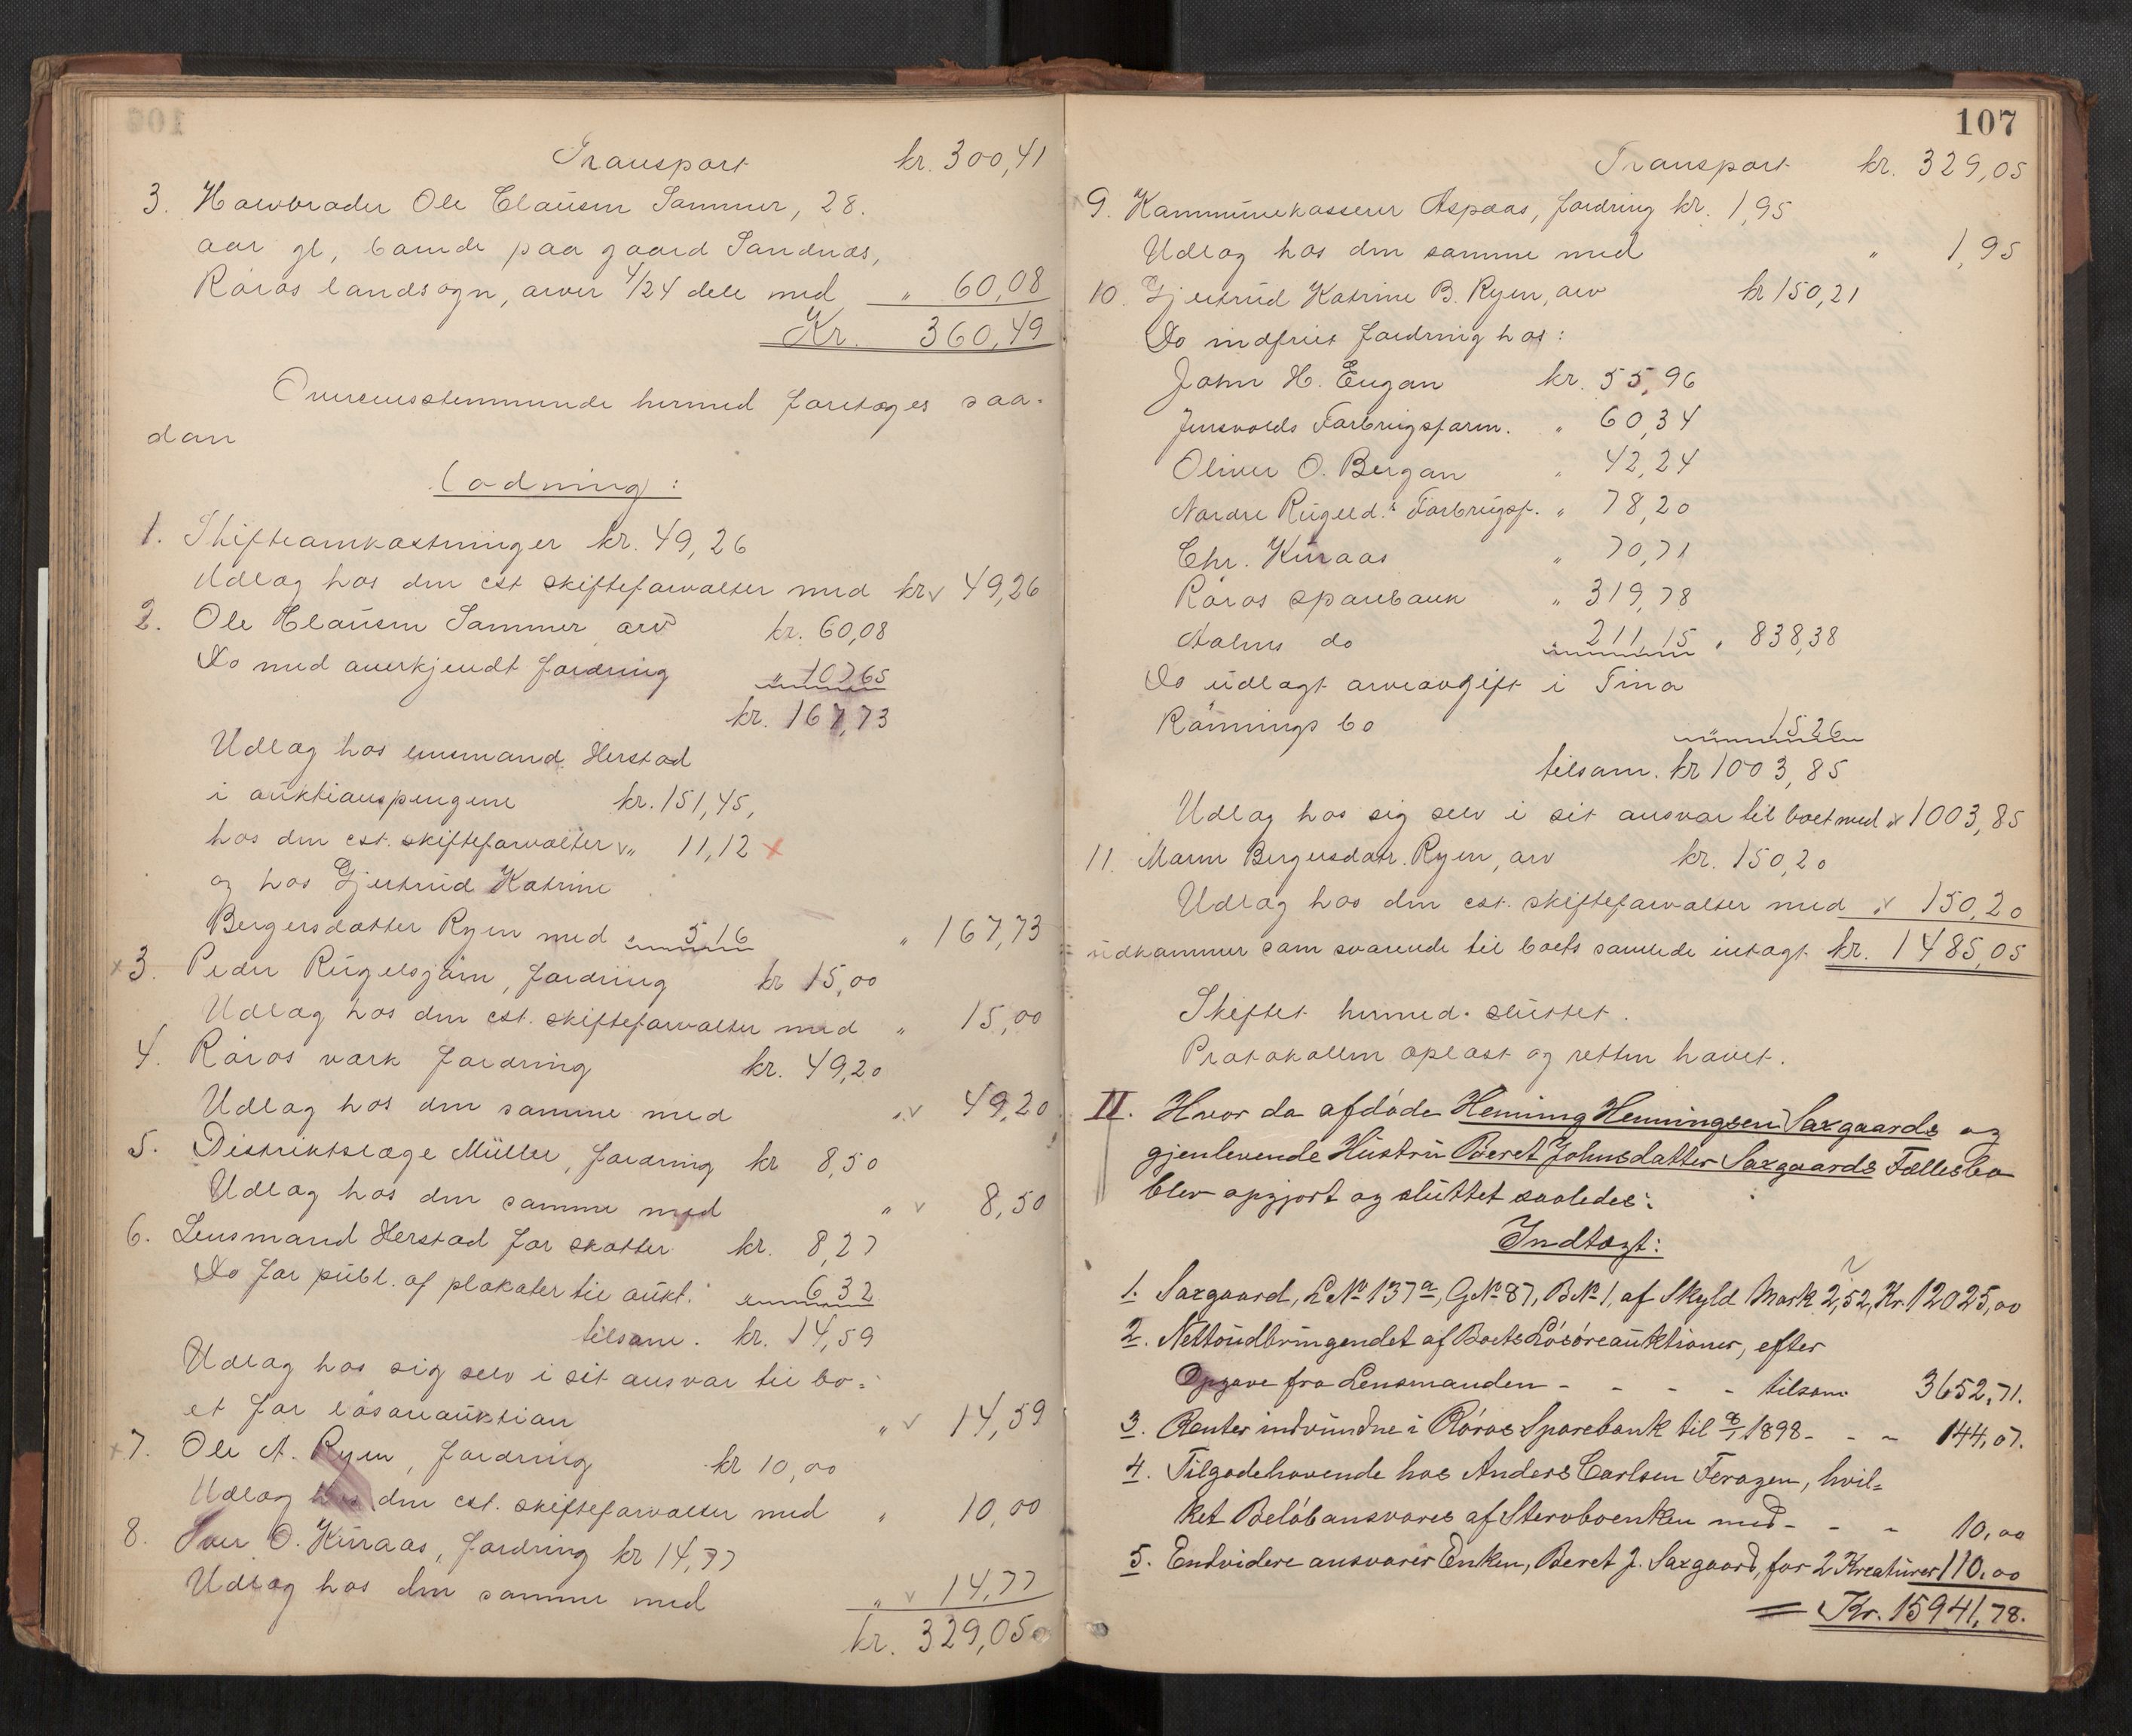 Transport kr. 300,41
3. Halvbroder Ole Claüsen Sammer, 28.
aar gl, boende paa gaard Sandnæs,
Røros landsogn, arver 4/24 dele med " 60,08
Kr. 360,49
Overensstemmende hermed foretoges saa-
dan
Lodning:
1. Skifteomkostninger kr. 49,26
Udlæg hos den cst skifteforvalter med kr v 49,26
2. Ole Claüsen Sammer arv kr. 60,08
Do med anerkjendt fordring " 107,65
kr. 167,73
Udlæg hos lensmand Herstad
i auktionspengene kr. 151,45,
hos den cst. skifteforvalter v " 11,12 x
og hos Gjertrud Katrine
Bergersdatter Ryen med " 5,16 " 167,73
x 3. Peder Rugelsjøen, fordring kr 15,00
Udlæg hos den cst. skifteforvalter med " 15,00
4. Røros værk fordring kr. 49,20
Udlæg hos den samme med " v 49,20
5. Distriktslæge Müller, fordring kr 8,50
Udlæg hos den samme med " v 8,50
6. Lensmand Herstad for skatter kr. 8,27
Do for publ. af plakater til aukt. " 6,32
tilsam. kr. 14,59
Udlæg hos sig selv i sit ansvar til bo-
et for løsøreauktion " v 14,59
x 7. Ole A. Ryen, fordring kr 10,00
Udlæg hos den cst. skifteforvalter med " 10,00
8. Iver O. Kuraas, fordring kr 14,77
Udlæg hos den samme med " v 14,77
kr. 329,05
107
Transport kr. 329,05
9. Kommunekasserer Aspaas, fordring kr. 1,95
Udlæg hos den samme med " 1,95
10. Gjertrud Katrine B. Ryen, arv kr 150,21
Do indfriet fordring hos:
John H. Engan kr. 55,96
Jensvolds Forbrugsforen. " 60,34
Oliver O. Bergan " 42,24
Nordre Rugeld.s Forbrugsf. " 78,20
Chr. Kuraas " 70,71
Røros sparebank " 319,78
Aalens do " 211,15 " 838,38
Do udlagt arveavgift i Tina
Rønnings bo " 15,26
tilsam. kr 1003,85
Udlæg hos sig selv i sit ansvar til boet med " v 1003,85
11. Maren Bergersdatr. Ryen, arv kr. 150,20
Udlæg hos den cst. skifteforvalter med " v 150,20
udkommer som svarende til boets samlede indtægt kr. 1485,05
Skiftet hermed sluttet.
Protokollen oplæst og retten hævet.
II. Hvor da afdøde Heming Hemingsen Saxgaards og
gjenlevende Hustru Beret Johnsdatter Saxgaards Fællesbo
blev opgjort og sluttet saaledes:
Indtægt:
1. Saxgaard, L.№ 137a, G№ 87, B№ 1, af Skyld Mark 2,52, Kr. 12025,00
2. Nettoudbringendet af Boets Løsøreauktioner, efter
Opgave fra Lensmanden - - - - tilsam 3652,71.
3. Renter indvundne i Røros Sparebank til 8/1 1898 - - - 144,07.
4. Tilgodehavende hos Anders Carlsen Feragen, hvil-
ket Beløb ansvares af Stervboenken med - - - 10,00
5. Endvidere ansvarer Enken, Beret J. Saxgaard, for 2 Kreaturer 110,00
= Kr. 15941,78.